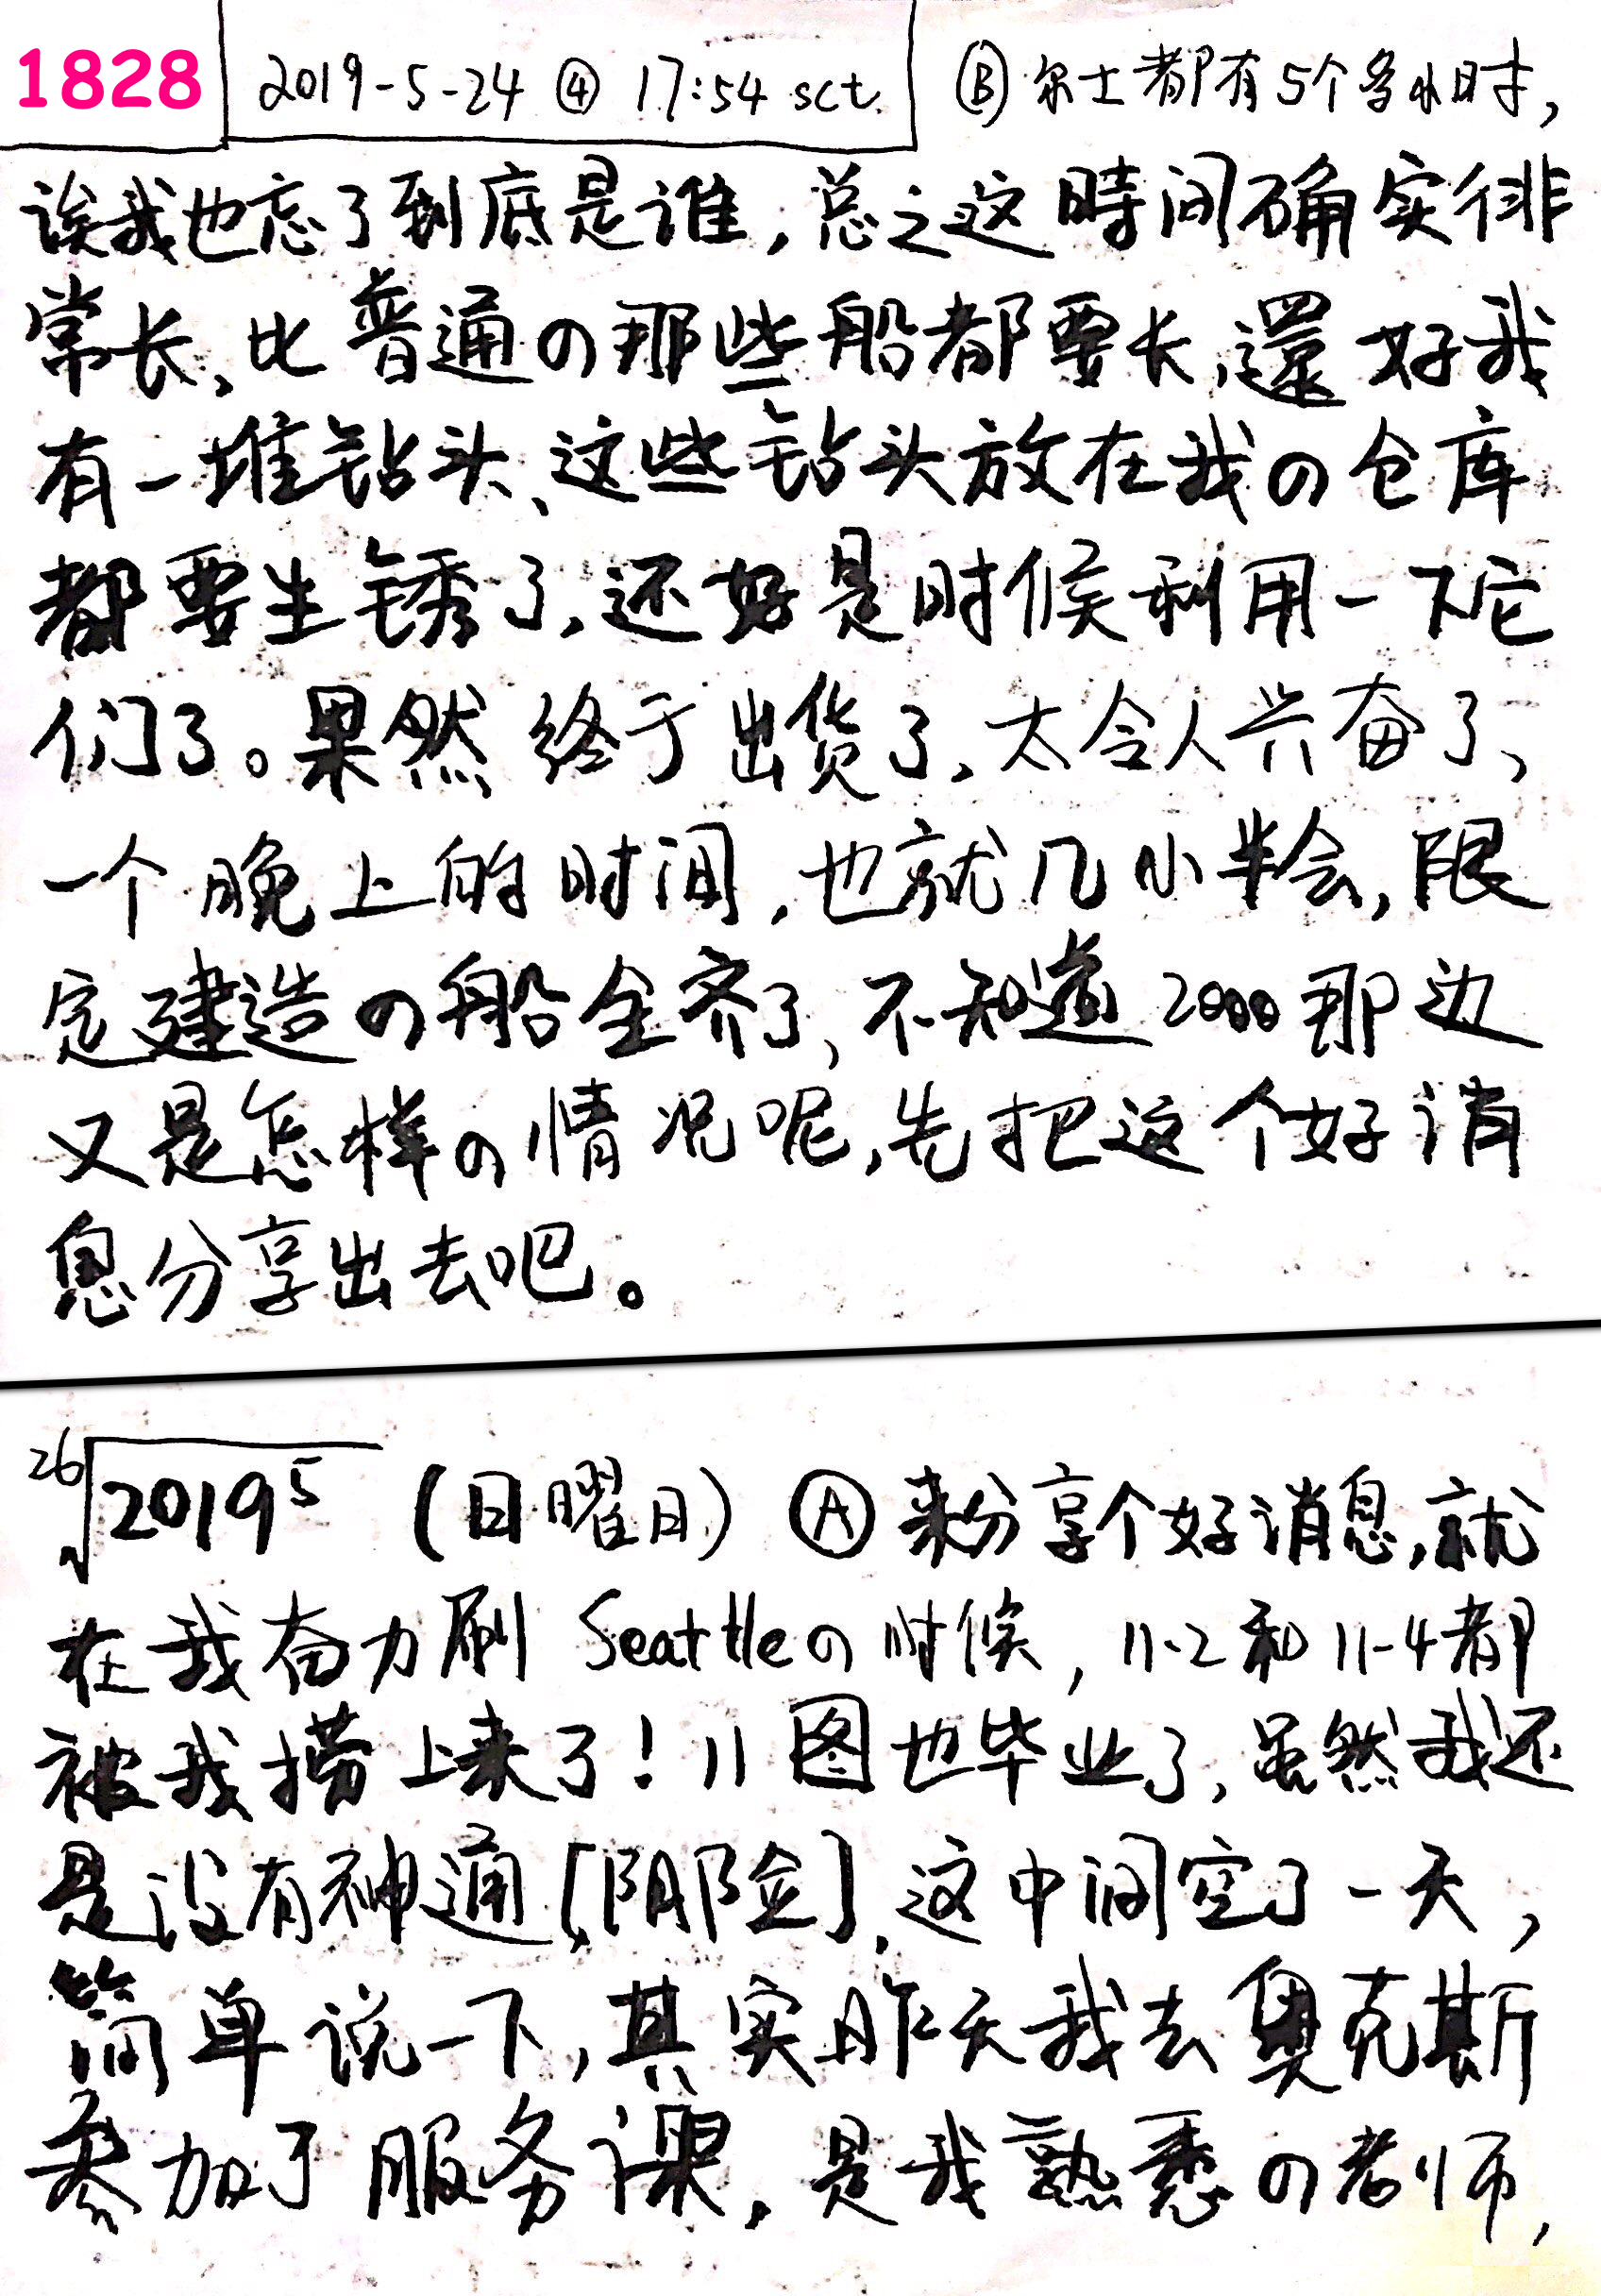 1828 2019-5-24 ④ 17:54 sct. Ⓑ 尔士都有5个多小时,
诶我也忘了到底是谁,总之这時间确实徘
常长,比普通の那些船都要长,還好我
有一堆钻头、这些钻头放在我の仓库
都要生锈了,还好是时候利用一下它
们了。果然终于出货了,太令人兴奋了、
一个晚上的时间,也就几小半会,限
定建造の船全齐了,不知道2000那边
又是怎样の情况呢,先把这个好消
息分享出去吧。
26√2019⁵ (日曜日) Ⓐ 来分享个好消息,就
在我奋力刷 Seattleの时候,11-2和11-4都
被我捞上来了!11图也毕业了,虽然我还
是没有神通[阴险],这中间空了一天,
简单说一下,其实昨天我去奥克斯
参加了服务课,是我熟悉の老师,